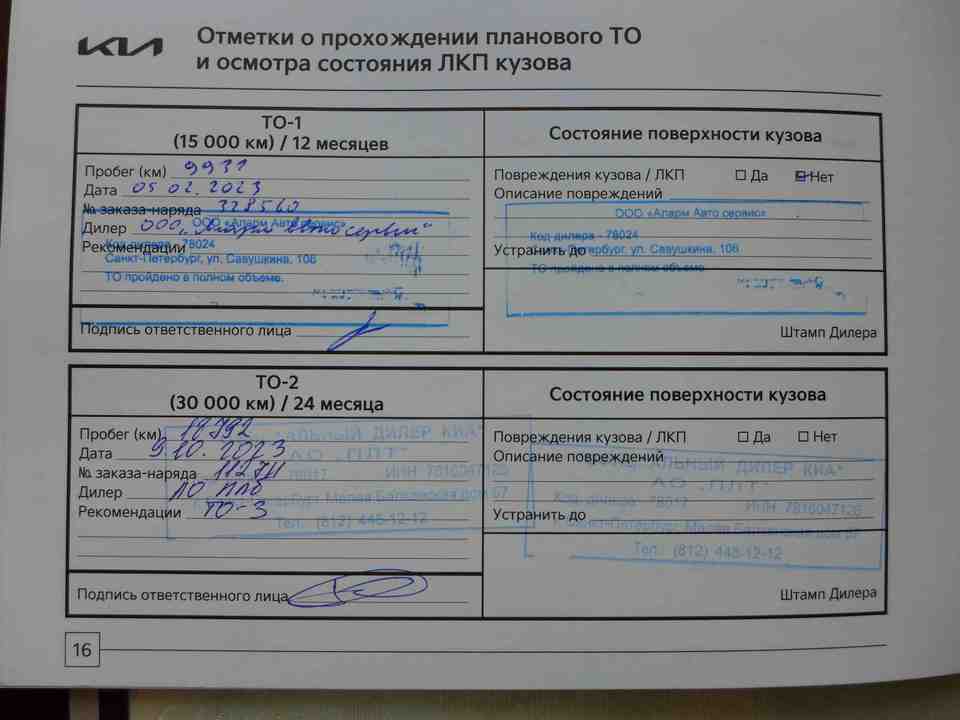 KIA
Отметки о прохождении планового ТО
и осмотра состояния ЛКП кузова
ТО-1
(15 000 км) / 12 месяцев
Состояние поверхности кузова
Пробег (км) 9931
Дата 05 02. 2023
№ заказа-наряда 328560
Дилер ООО "Аларм Автосервис"
Рекомендации
ООО «Аларм Авто сервис»
Код дилера - 78024
Санкт-Петербург, ул. Савушкина, 106
ТО пройдено в полном объеме.
Подпись ответственного лица
Повреждения кузова / ЛКП Да Нет
Описание повреждений
ООО «Аларм Авто сервис»
Код дилера - 78024
Санкт-Петербург, ул. Савушкина, 106
Устранить до
ТО пройдено в полном объеме
Штамп Дилера
ТО-2
(30 000 км) / 24 месяца
Состояние поверхности кузова
Пробег (км)
Дата 9.10.2023
№ заказа-наряда
Дилер АО
Рекомендации ТО-3
ДИЛЕР КИА"
АО "ПЛТ"
78017 ИНН 7816047126
Малая Балканская дом 57
Тел. (812) 448-12-12
Подпись ответственного лица
Повреждения кузова / ЛКП Да Нет
Описание повреждений
ДИЛЕР КИА"
АО "ПЛТ"
Код дилера 78017 ИНН 7816047126
Устранить до
Санкт-Петербург Малая Балканская дом 57
Тел.: (812) 448-12-12
Штамп Дилера
16